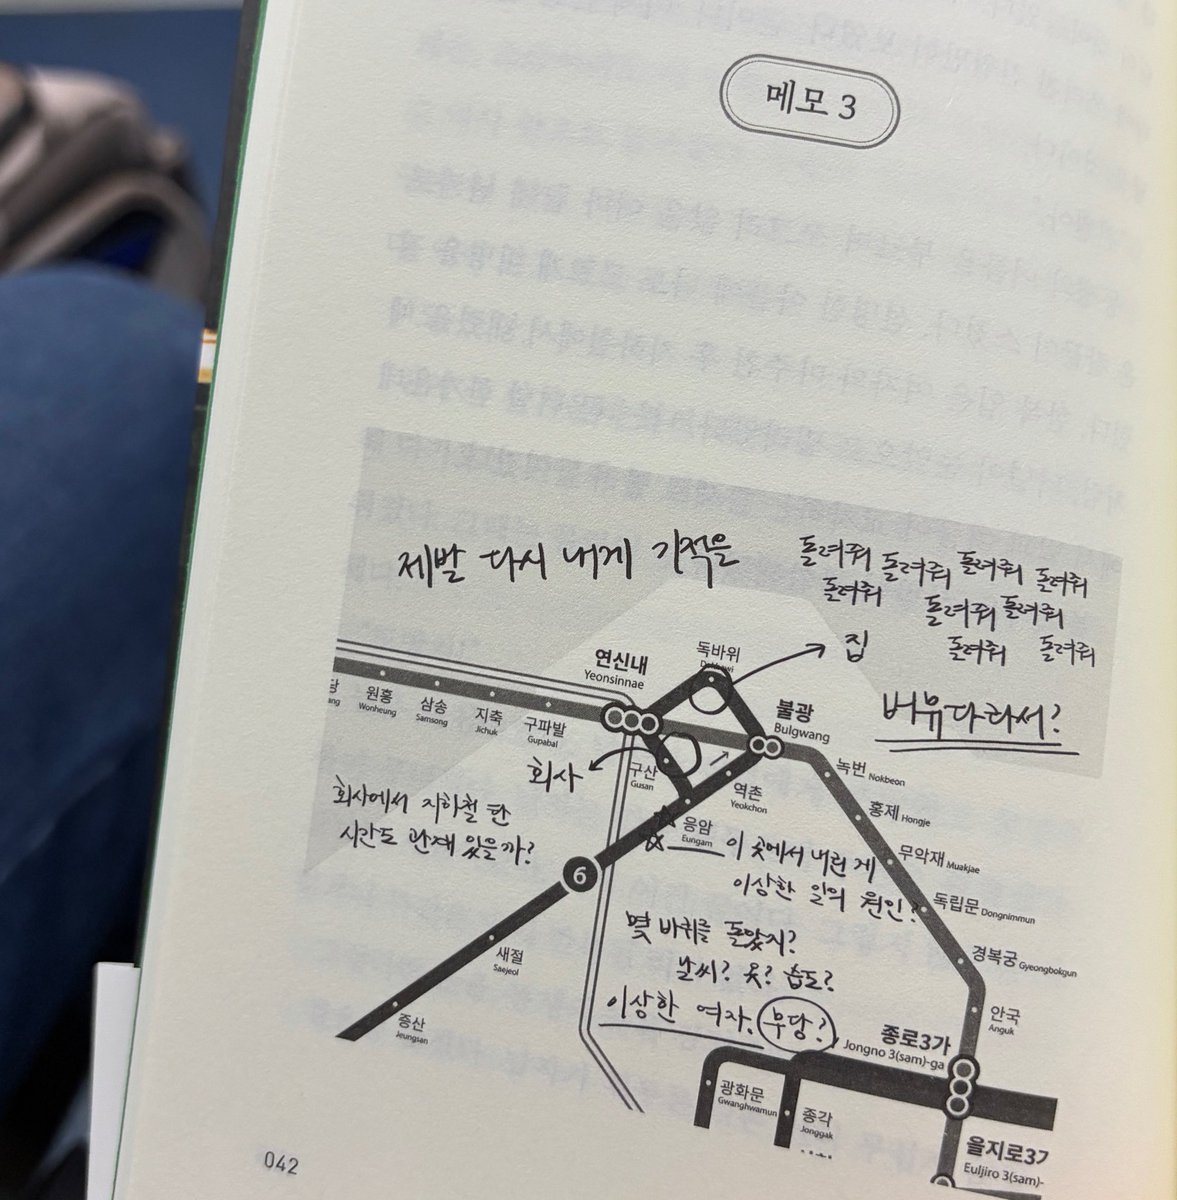 메모 3
제발 다시 내게 기적을
돌려줘 돌려줘 돌려줘 돌려줘
돌려줘 돌려줘 돌려줘
돌려줘 돌려줘
집
버뮤다라서?
연신내
Yeonsinnae
독바위
불광
Bulgwang
원흥
Wonheung
삼송
Samsong
지축
Jichuk
구파발
Gupabal
회사
구산
Gusan
녹번 Nokbeon
역촌
Yeokchon
홍제 Hongje
회사에서 지하철 탄
시간도 관계 있을까?
응암
Eungam
이 곳에서 내린 게
이상한 일의 원인?
무악재 Muakjae
6
독립문 Dongnimmun
몇 바퀴를 돌았지?
날씨? 옷? 습도?
새절
Saejeol
경복궁 Gyeongbokgun
이상한 여자. 무당?
안국
Anguk
증산
Jeungsan
종로3가
Jongno 3(sam)-ga
광화문
Gwanghwamun
종각
Jonggak
을지로3
Euljiro 3(sam)-
042